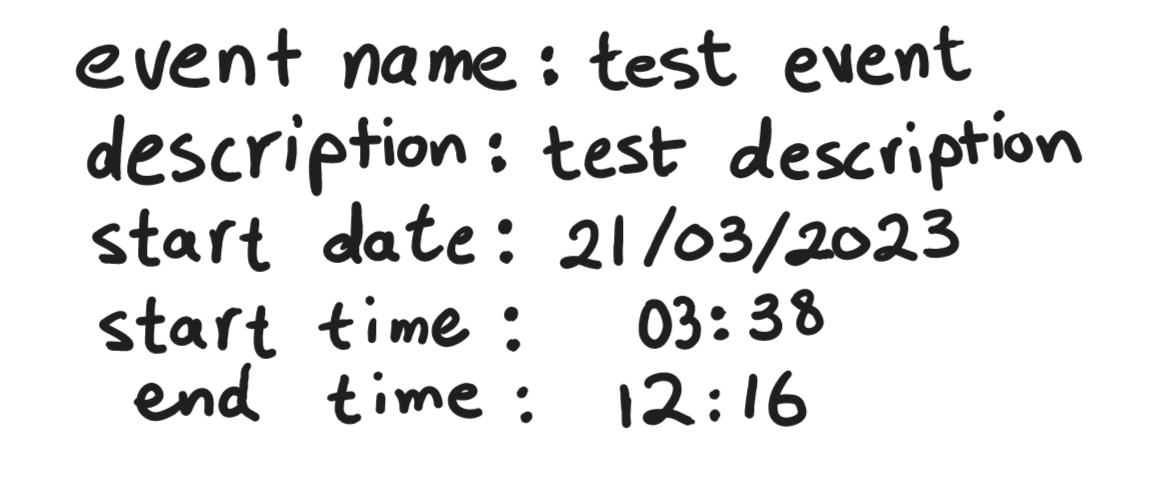 event name: test event
description: test description
start date: 21/03/2023
start time: 03:38
end time: 12:16